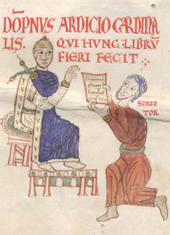 DŌPNVS ARDICIO CARDINA
LIS. QVI HVNC LIBRV̄
FIERI FECIT
SCRIP
TOR